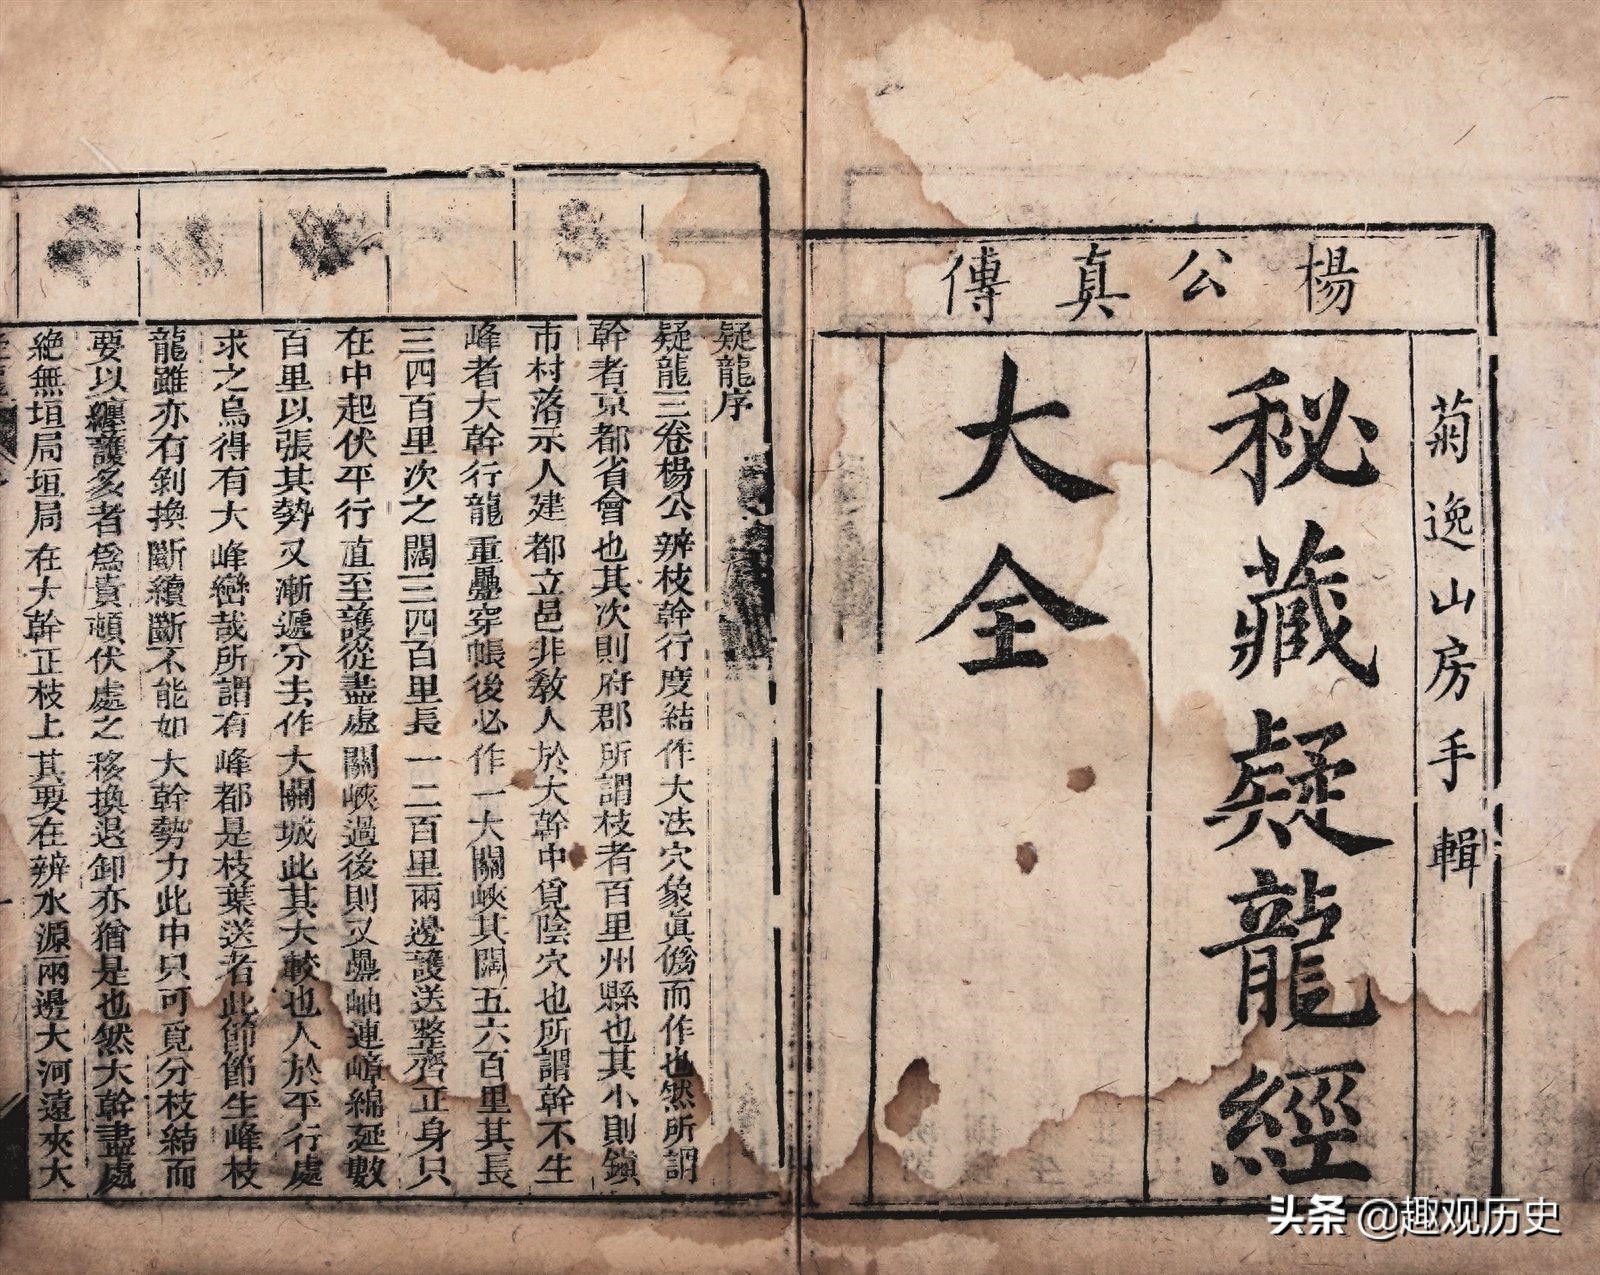 楊公真傳
菊逸山房手輯
秘藏疑龍經
大全
疑龍序
疑龍三卷楊公辨枝幹行度結作大法穴象眞僞而作也然所謂
幹者京都省會也其次則府郡所謂枝者百里州縣也其小則鎭
市村落示人建都立邑非敎人於大幹中覓陰穴也所謂幹不生
峰者大幹行龍重疊穿帳後必作一大關峽其闊五六百里其長
三四百里次之闊三四百里長一二百里兩邊護送整齊正身只
在中起伏平行直至護從盡處關峽過後則又疊岫連嶂綿延數
百里以張其勢又漸遞分去作大關城此其大較也人於平行處
求之烏得有大峰巒哉所謂有峰都是枝葉送者此節節生峰枝
龍雖亦有剝換斷續斷不能如大幹勢力此中只可覓分枝結而
要以纏護多者爲貴頓伏處之移換退卸亦猶是也然大幹盡處
絶無垣局垣局在大幹正枝上其要在辨水源兩邊大河遠夾大
头条 @趣观历史